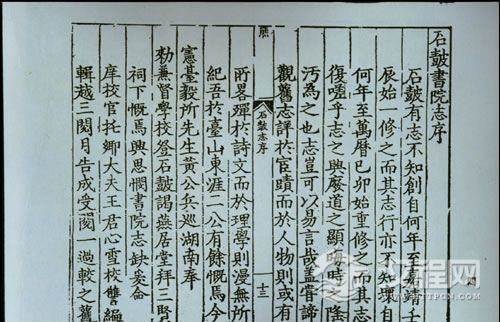 石鼓書院志序
石鼓有志不知創自何年至嘉靖壬
辰始一修之而其志行亦不知壞自
何年至萬曆己卯始重修之而其志
復嗟乎志之興廢道之顯晦時之隆
汚為之也志豈可以易言哉蓋嘗諦
觀舊志詳於官蹟而於人物則或有
石鼓志序
十三
所畧殫於詩文而於理學則漫無所
紀吾於臺山東涯二公有餘慨焉今
憲臺毅所先生黃公兵巡湖南奉
勑兼督學校登石鼓謁燕居堂拜三賢
祠下慨焉興思憫書院志缺奚倫
庠校官托鄉大夫王君心雪校讐編
輯越三閱月告成受閱一過較之舊